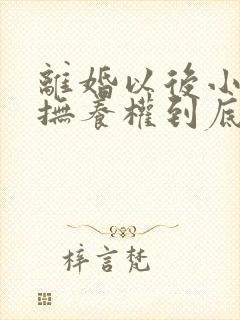 離婚以後小
撫養權到底
梓言梵